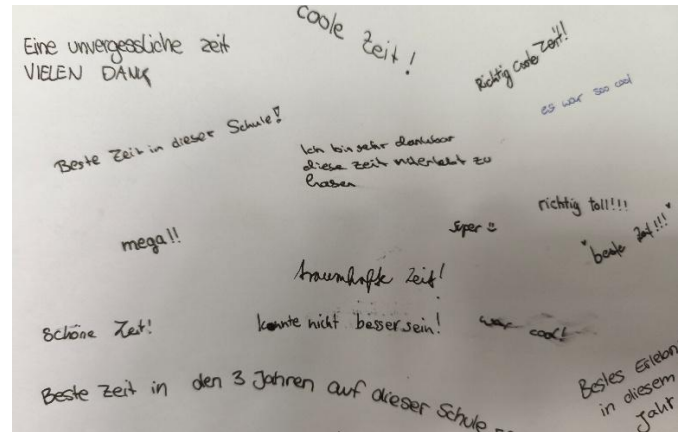 Eine unvergessliche zeit
VIELEN DANK
coole Zeit!
Richtig coole Zeit!!
es war soo cool
Beste Zeit in dieser Schule!
Ich bin sehr dankbar
diese Zeit zu
haben
richtig toll!!!
mega!!
super
beste Zeit!!!
traumhafte Zeit!
Schöne Zeit!
konnte nicht besser sein!
war cool!
Beste Zeit in den 3 Jahren auf dieser Schule
Bestes
in diesem
Jahr